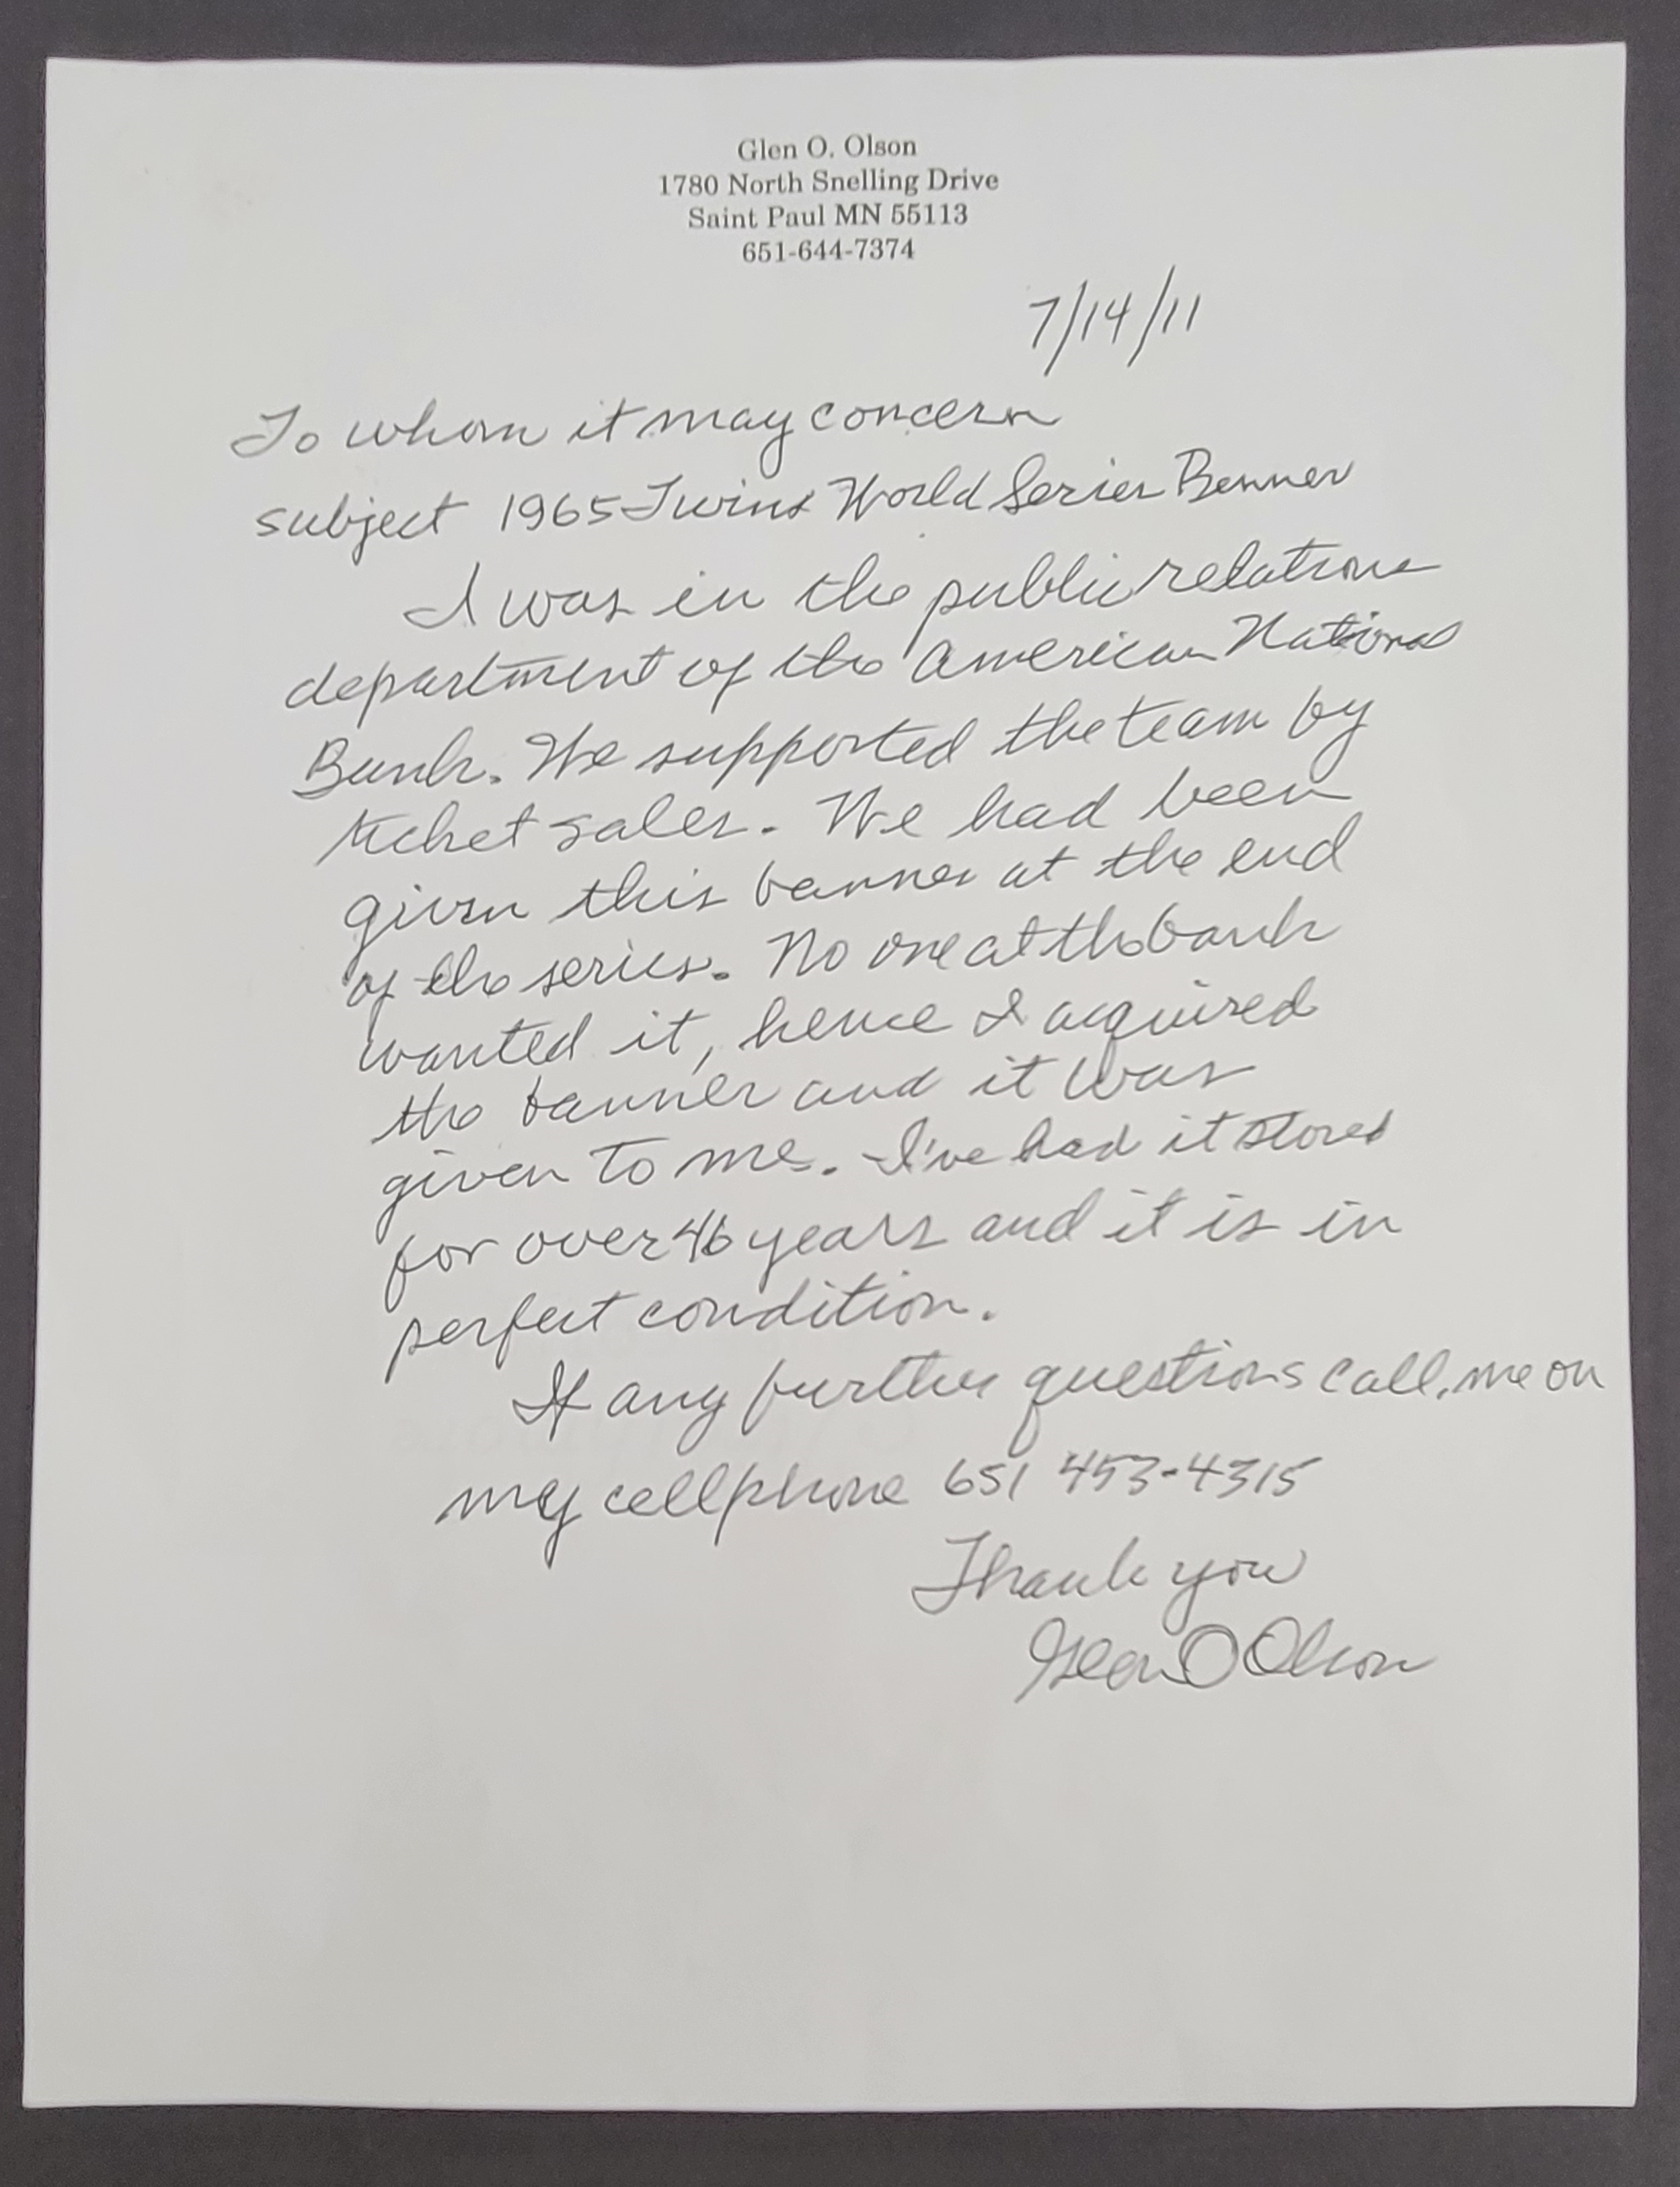 Glen O. Olson
1780 North Snelling Drive
Saint Paul MN 55113
651-644-7374
7/14/11
To whom it may concern
subject 1965 Twins World Series Banner
I was in the public relations
department of the American National
Bank. We supported the team by
ticket sales. We had been
given this banner at the end
of the series. No one at the bank
wanted it, hence I acquired
the banner and it was
given to me. I've had it stored
for over 46 years and it is in
perfect condition.
If any further questions call me on
my cellphone 651 453-4315
Thank you
Glen O Olson